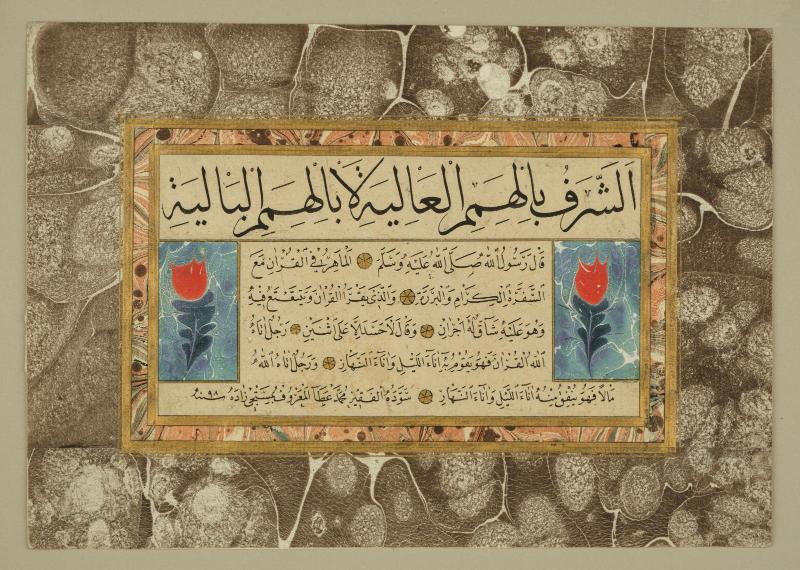 اَلشَّرَفُ بِالْهِمَمِ الْعَالِيَةِ لَا بِالْهِمَمِ الْبَالِيَةِ
قَالَ رَسُولُ اللّٰهِ صَلَّى اللّٰهُ عَلَيْهِ وَسَلَّمَ اَلْمَاهِرُ فِي الْقُرْاٰنِ مَعَ
السَّفَرَةِ الْكِرَامِ وَالْبَرَرَةِ وَالَّذِي يَقْرَأُ الْقُرْاٰنَ وَيَتَعْتَعُ فِيهِ
وَهُوَ عَلَيْهِ شَاقٌّ لَهُ اَجْرَانِ وَقَالَ لَا حَسَدَ اِلَّا عَلَى اثْنَيْنِ رَجُلٌ اٰتَاهُ
اللّٰهُ الْقُرْاٰنَ فَهُوَ يَقُومُ بِهِ اٰنَاءَ اللَّيْلِ وَاٰنَاءَ النَّهَارِ وَرَجُلٌ اٰتَاهُ اللّٰهُ
مَالًا فَهُوَ يُنْفِقُ مِنْهُ اٰنَاءَ اللَّيْلِ وَاٰنَاءَ النَّهَارِ سَوَّدَهُ الْفَقِيرُ مُحَمَّدْ عَطَا الْمَعْرُوفُ